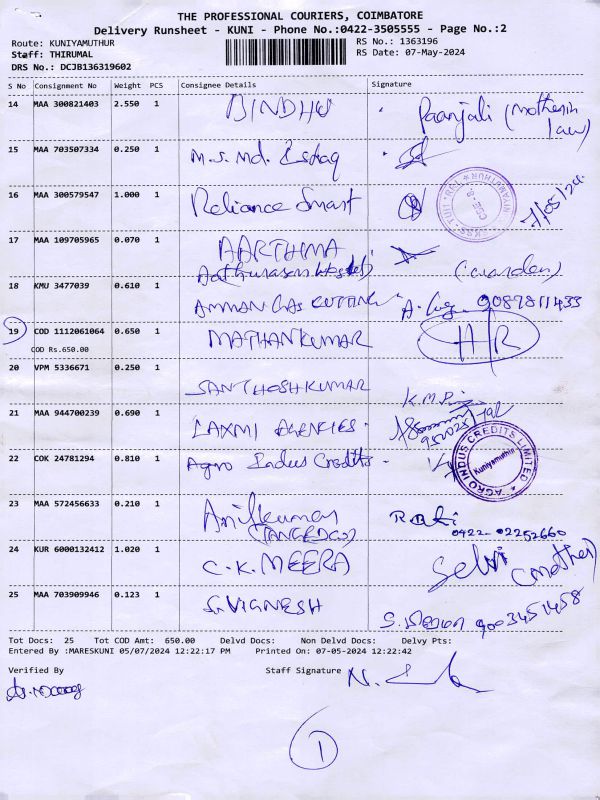 THE PROFESSIONAL COURIERS, COIMBATORE
Delivery Runsheet - KUNI - Phone No.:0422-3505555 - Page No.:2
Route: KUNIYAMUTHUR RS No.: 1363196
Staff: THIRUMAL RS Date: 07-May-2024
DRS No.: DCJB136319602
S No Consignment No Weight PCS Consignee Details Signature
14 MAA 300821403 2.550 1 BINDHU Paanjali (Mother in
law)
15 MAA 703507334 0.250 1 M.S. Md. Eshaq
16 MAA 300579547 1.000 1 Reliance Smart
17 MAA 109705965 0.070 1 AARTHMA
(warden)
18 KMU 3477039 0.610 1 AMMAN GAS CUTTING 9087811433
19 COD 1112061064 0.650 1 MATHANKUMAR
COD Rs.650.00
20 VPM 5336671 0.250 1 SANTHOSHKUMAR
21 MAA 944700239 0.690 1 LAXMI AGENCIES
22 COK 24781294 0.810 1 Agro Indus Credits
AGRO INDUS CREDITS LIMITED
Kuniyamuthur
23 MAA 572456633 0.210 1 Anilkumar
(TANGEDCO) 0422-02252660
24 KUR 6000132412 1.020 1 C.K. MEERA Selvi (mother)
25 MAA 703909946 0.123 1 S. VIGNESH 9003451458
Tot Docs: 25 Tot COD Amt: 650.00 Delvd Docs: Non Delvd Docs: Delvy Pts:
Entered By :MARESKUNI 05/07/2024 12:22:17 PM Printed On: 07-05-2024 12:22:42
Verified By Staff Signature
1